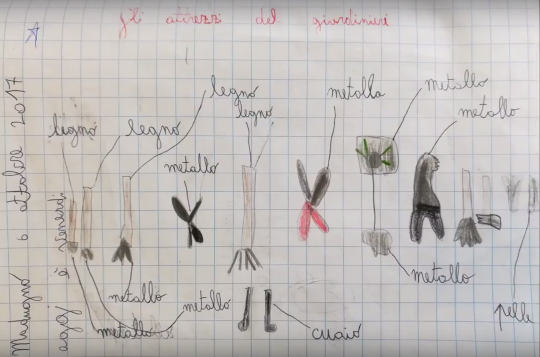 gli attrezzi del giardinieri
Modugno 6 ottobre 2017
oggi è venerdì
legno
legno
legno
legno
metallo
metalla
metallo
metallo
metallo
metallo
metallo
metallo
cuoio
pelle